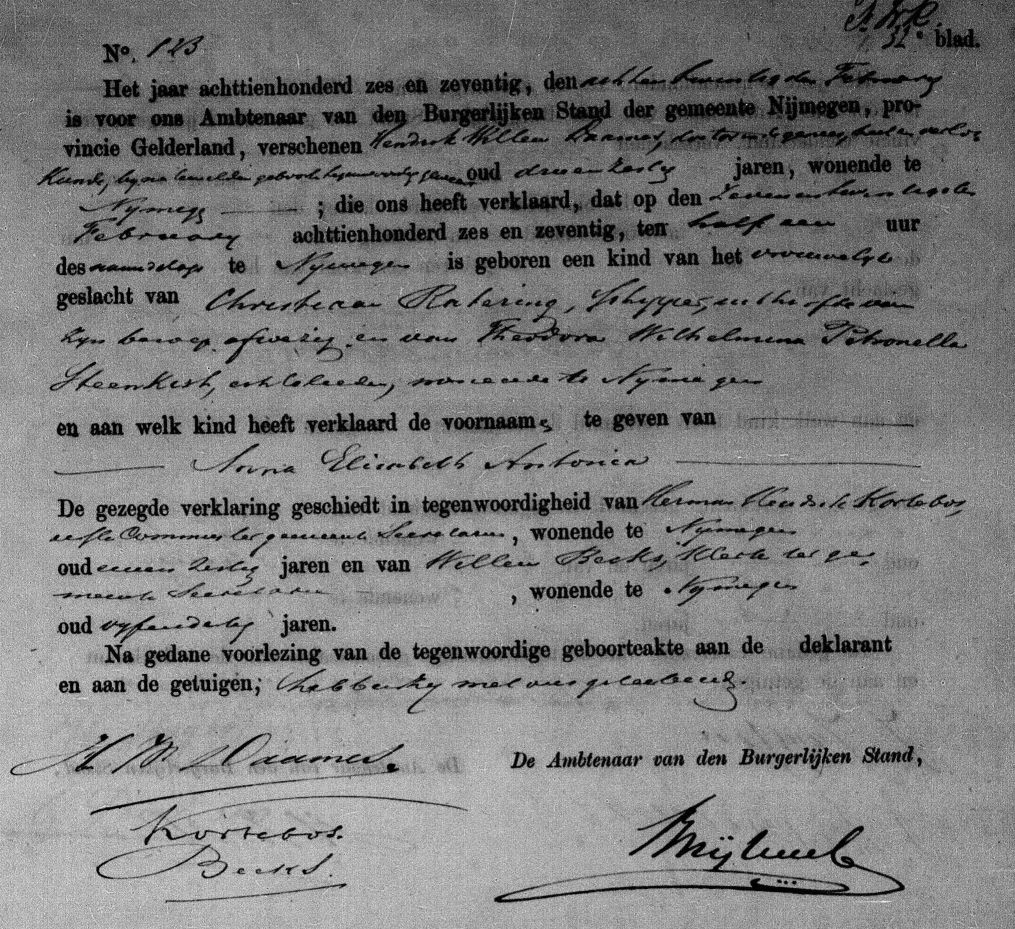 32e blad.
No. 123
Het jaar achttienhonderd zes en zeventig, den achtentwintigsten February
is voor ons Ambtenaar van den Burgerlijken Stand der gemeente Nijmegen, pro-
vincie Gelderland, verschenen Hendrik Willem Daames, doctor in de genees, heel en verlos
kunde, by de gemelden geboorte tegenwoordig geweest, oud drieenzestig jaren, wonende te
Nymegen ; die ons heeft verklaard, dat op den Zevenentwintigsten
February achttienhonderd zes en zeventig, ten half een uur
des namiddags te Nymegen is geboren een kind van het vrouwelyk
geslacht van Christiaan Ratering, Schipper, uit hoofde van
zyn beroep afwezig en van Theodora Wilhelmina Petronella
Steenkist, echtelieden, wonende te Nymegen
en aan welk kind heeft verklaard de voornaams te geven van
Anna Elisabeth Antonia
De gezegde verklaring geschiedt in tegenwoordigheid van Herman Hendrik Kortebos,
eerste Commies ter gemeente Secretarie, wonende te Nymegen
oud eenenzestig jaren en van Willem Becks, Klerk ter ge-
meente Secretarie, wonende te Nymegen
oud vyfendertig jaren.
Na gedane voorlezing van de tegenwoordige geboorteakte aan de deklarant
en aan de getuigen, hebben zy met ons geteekend.
H W Daames.
De Ambtenaar van den Burgerlijken Stand,
Kortebos.
Becks.